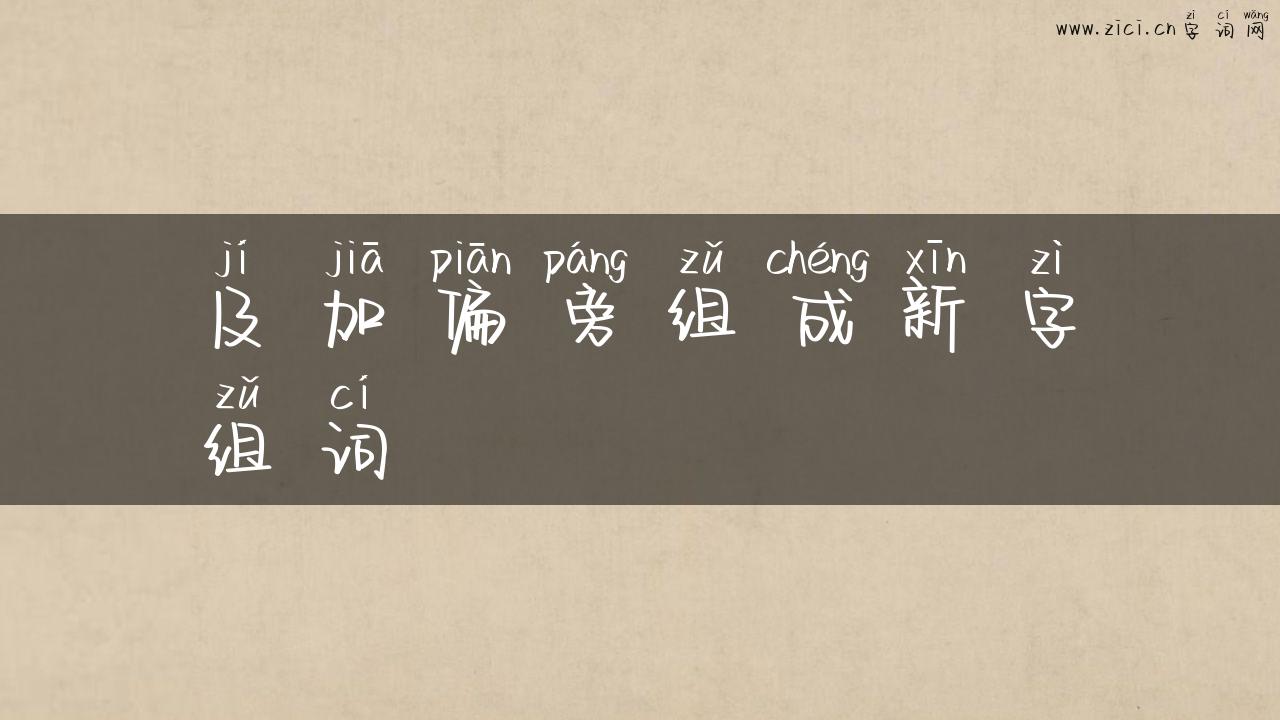 zì cí wǎng
www.zici.cn字词网
jí jiā piān páng zǔ chéng xīn zì
及加偏旁组成新字
zǔ cí
组词